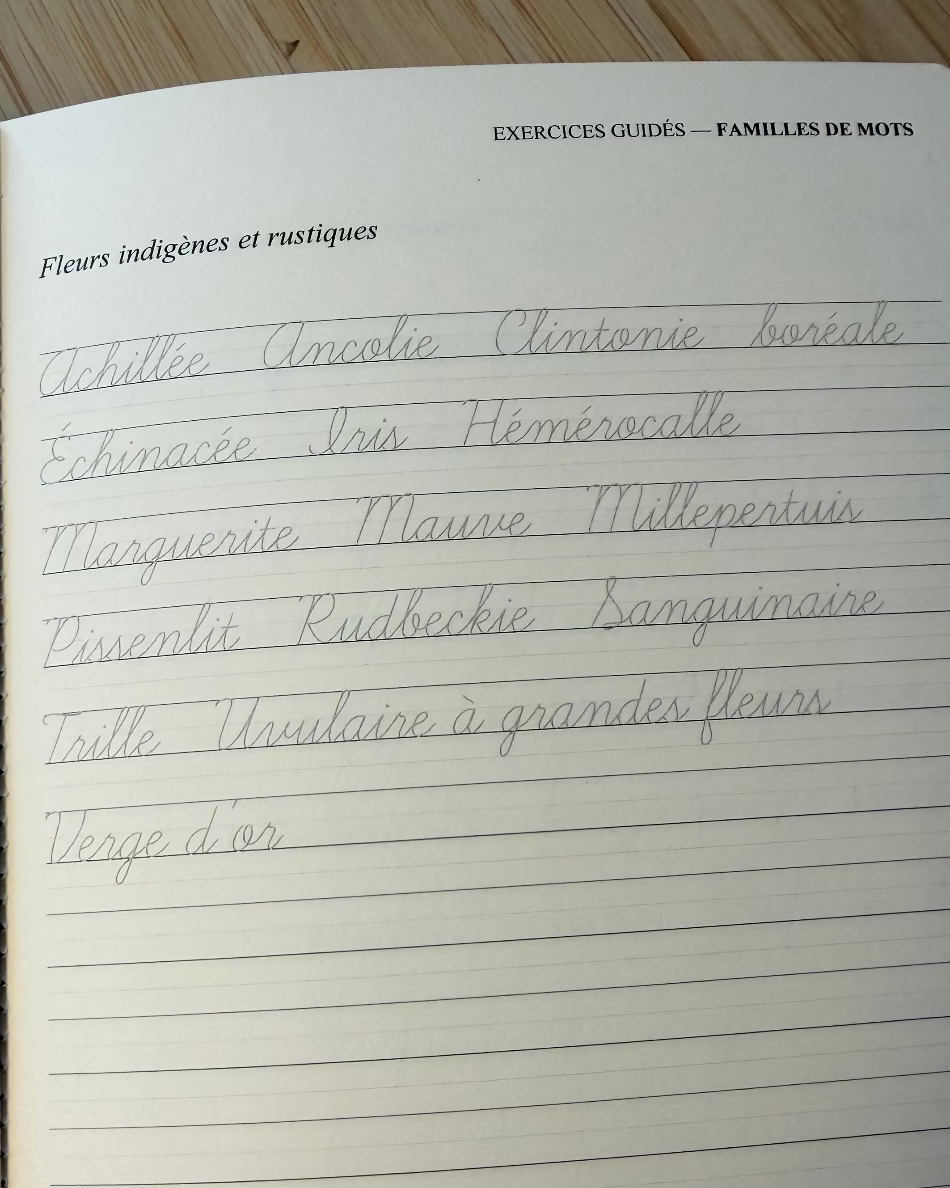 EXERCICES GUIDÉS — FAMILLES DE MOTS
Fleurs indigènes et rustiques
Achillée Ancolie Clintonie boréale
Échinacée Iris Hémérocalle
Marguerite Mauve Millepertuis
Pissenlit Rudbeckie Sanguinaire
Trille Uvulaire à grandes fleurs
Verge d'or